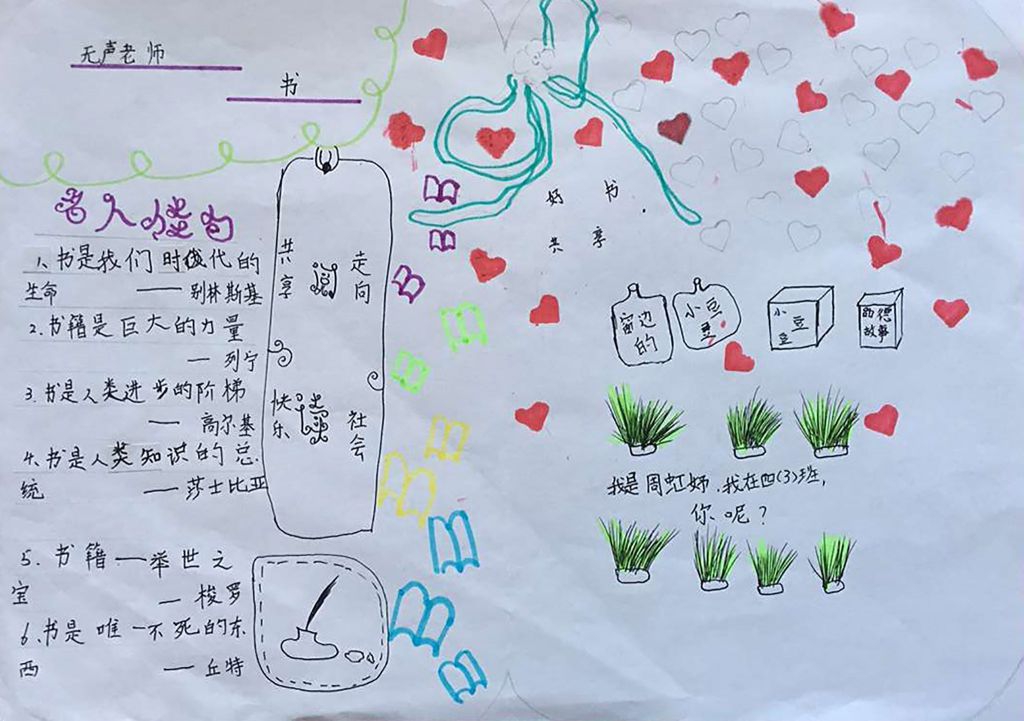 无声老师
书
名人佳句
1、书是我们时代的
生命 —— 别林斯基
2.书籍是巨大的力量
— 列宁
3.书是人类进步的阶梯
—— 高尔基
4.书是人类知识的总
统 —— 莎士比亚
5.书籍—举世之
宝 — 梭罗
6.书是唯一不死的东
西 —— 丘特
共享
快乐
走向
社会
好书
共享
窗边的
小豆豆
小豆豆
德
故事
我是周虹 .我在四(3)班,
你呢?